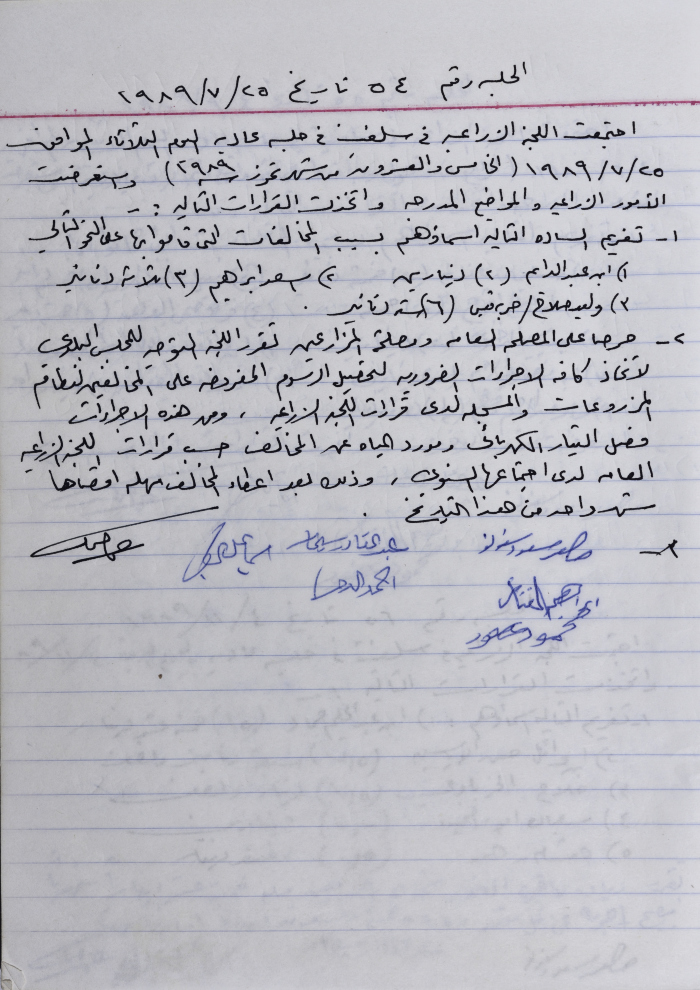 الجلسه رقم ٥٤ تاريخ ٢٥/٧/١٩٨٩
اجتمعت اللجنة الزراعيه في سلفيت في جلسه عاديه اليوم الثلاثاء الموافق
٢٥/٧/١٩٨٩ (الخامس والعشرون من شهر تموز سنه ١٩٨٩) واستعرضت
الأمور الزراعيه والمواضيع المدرجه واتخذت القرارات التاليه :-
١- تغريم الساده التاليه اسماؤهم بسبب المخالفات التي قاموا بها على النحو التالي
١) ابو عبدالدايم (٢) دينارين ٢) سعد ابراهيم (٣) ثلاثة دنانير
٣) وليد صلاح / (٦) سته دنانير .
٢- حرصا على المصلحه العامه ومصلحة المزارعين تقرر اللجنه التوجه للمجلس البلدي
لاتخاذ كافه الاجراءات الضروريه لتحصيل الرسوم المفروضه على المخالفين لنظام
المزروعات والمسجله لدى قرارات اللجنة الزراعيه ، ومن هذه الاجراءات
فصل التيار الكهربائي ومورد المياه عن المخالف حسب قرارات اللجنه الزراعيه
العامه لدى اجتماعها السنوي ، وذلك بعد اعطاء المخالف مهله اقصاها
شهر واحد من هذا التاريخ .
٣- عبد القادر
محمود